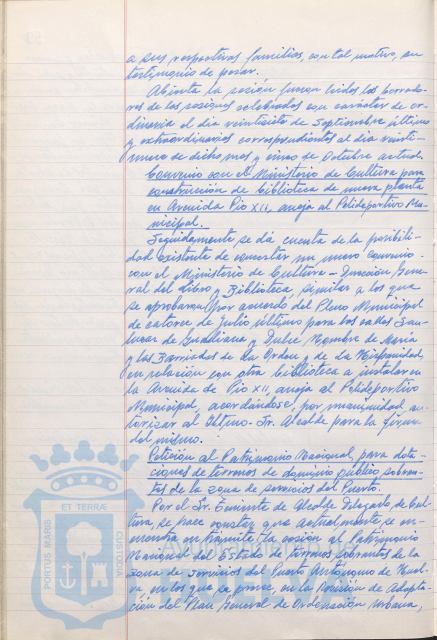 a sus respectivas familias, con tal motivo, en
testimonio de pesar.
Abierta la sesión fueron leidos los borrado-
res de las sesiones celebradas con carácter de or-
dinaria el dia veintisiete de Septiembre último
y extraordinarias correspondientes al dia veinti-
nueve de dicho mes y cinco de Octubre actual.
Convenio con el Ministerio de Cultura para
construcción de biblioteca de nueva planta
en Avenida Pio XII, aneja al Polideportivo Mu-
nicipal.
Seguidamente se dá cuenta de la posibili-
dad existente de concertar un nuevo convenio
con el Ministerio de Cultura - Dirección Gene-
ral del Libro y Biblioteca, similar a los que
se aprobaron por acuerdo del Pleno Municipal
de catorce de Julio último para las calles San-
lucar de Guadiana y Dulce Nombre de Maria
y las Barriadas de La Orden y de La Hispanidad,
en relación con otra biblioteca a instalar en
la Avenida de Pio XII, aneja al Polideportivo
Municipal, acordándose, por unanimidad au-
torizar al Iltmo. Sr. Alcalde para la firma
del mismo.
Petición al Patrimonio Nacional, para dota-
ciones de terrenos de dominio público sobran-
tes de la zona de servicios del Puerto.
Por el Sr. Teniente de Alcalde Delegado de Cul-
tura, se hace constar que actualmente se en-
cuentra en trámite la cesión al Patrimonio
Nacional del Estado de terrenos sobrantes de la
Zona de Servicios del Puerto Autónomo de Huel-
va en los que se prevé, en la Revisión de Adapta-
ción del Plan General de Ordenación Urbana,
PORTUS MARIS
ET TERRAE
CUSTODIA